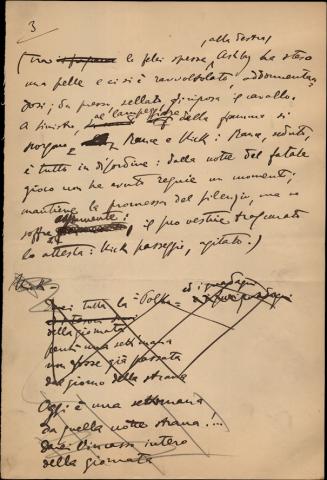 3
alla destra,
(tra le felci spesse, Ashby ha steso
una pelle e ci si è ravvoltolato, addormentan-
dosi; da presso, sellato, si riposa il cavallo.
A sinistra, al lampeggiare della fiamma si
scorgono Rance e Nick: Rance, seduto,
è tutto in disordine: dalla notte del fatale
gioco non ha avuto requie un momento;
mantiene la promessa del silenzio, ma ne
soffre il suo vestire trascurato
lo attesta: Nick passeggia, agitato.)
Nick -
Darei tutta la "Polka" e i guadagni
della giornata
perché una settimana
non fosse già passata
dal giorno della strana
Oggi è una settimana
da quella notte strana!...
Darei l'incasso intero
della giornata